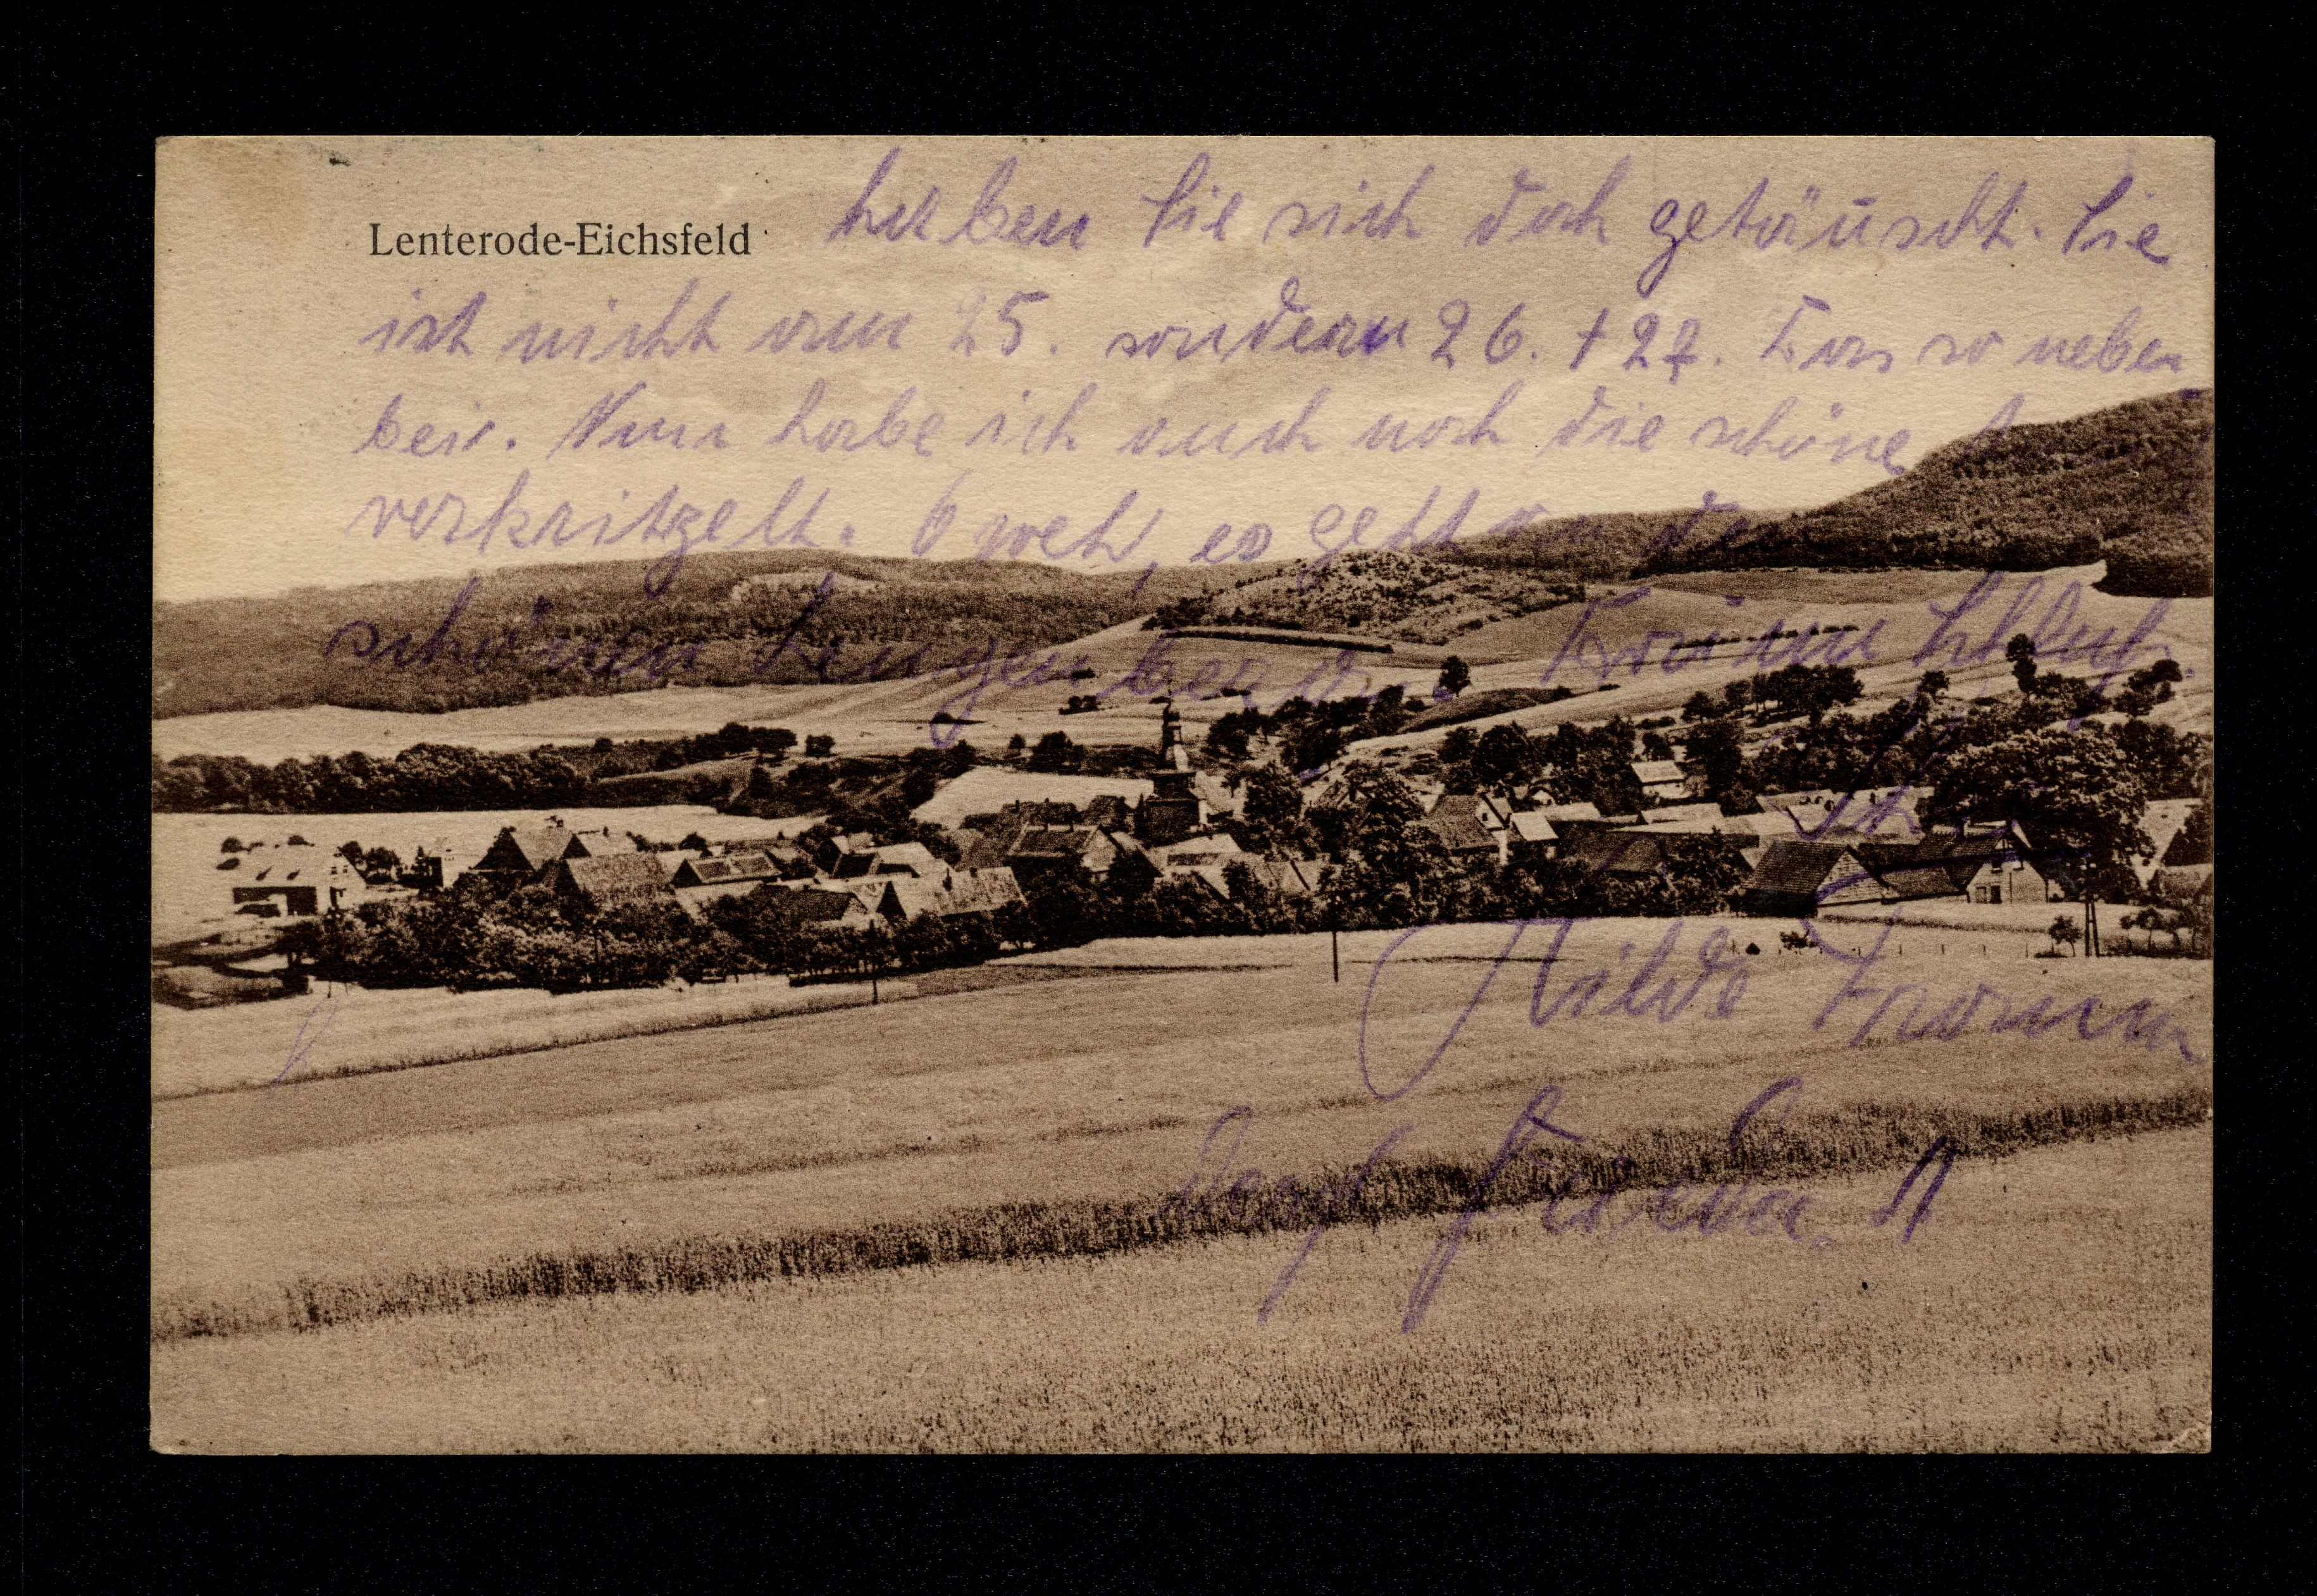 Lenterode-Eichsfeld
haben Sie sich doch getäuscht. Sie
ist nicht am 25. sondern 26. + 27. Das so neben
bei. Nun habe ich auch noch die schöne
verkritzelt. O weh, es geht an den
schönen Lengenberg. Drum Schluß.
Hilde Fromm